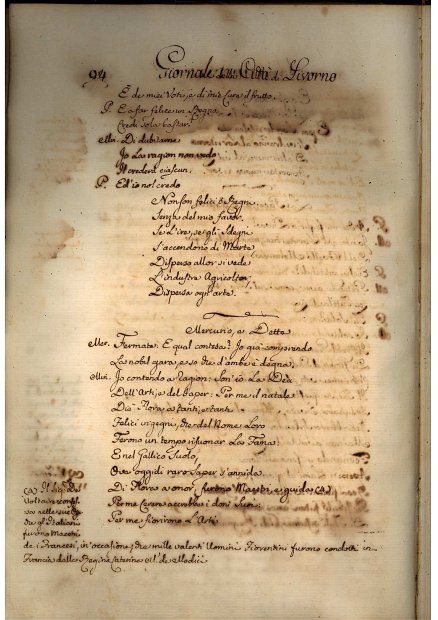 94 Giornale della Città di Livorno
E de miei Voti, e di mie Cure il frutto.
P. E a far felice un Regno
Credi Sola bastar?
Min. Di dubitarne
Io La ragion non vedo
Il crederà ciascun.
P. Ed io nol credo
Non son felici i Regni
Senza del mio favor.
Se L'ire, se gli Sdegni
S'accendono di Marte
Disperso allor si vede
L'industre Agricoltor,
Dispersa ogn'arte.
Mercurio, e Dette
Mer. Fermate: E qual contesa? Io già comprendo
La nobil gara, e so che d'ambe è degna.
Min. Io contendo a ragion: Son io La Dea
Dell'Arti, e del Saper: Per me il natale
Die' Flora a tanti, e tanti
Felici ingegni, che del Nome Loro
Ferono un tempo risuonar La Fama
E nel Gallico Suolo,
Ove oggidi raro Saper s'annida
Di Flora a onor, furono Maestri, e guida (A).
Per me Cerere accrebbe i doni Suoi:
Per me fiorirono L'Arti
(A) Il Sig. de
Voltaire
vo nelle sue
che gl'Italiani
furono Maestri
de i Francesi, in occasione, che mille valenti Uomini Fiorentini furono condotti in
Francia dalla Regina Caterina de Medici